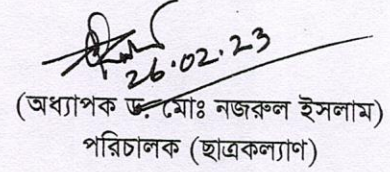 26.02.23
(অধ্যাপক ড. মোঃ নজরুল ইসলাম)
পরিচালক (ছাত্রকল্যাণ)